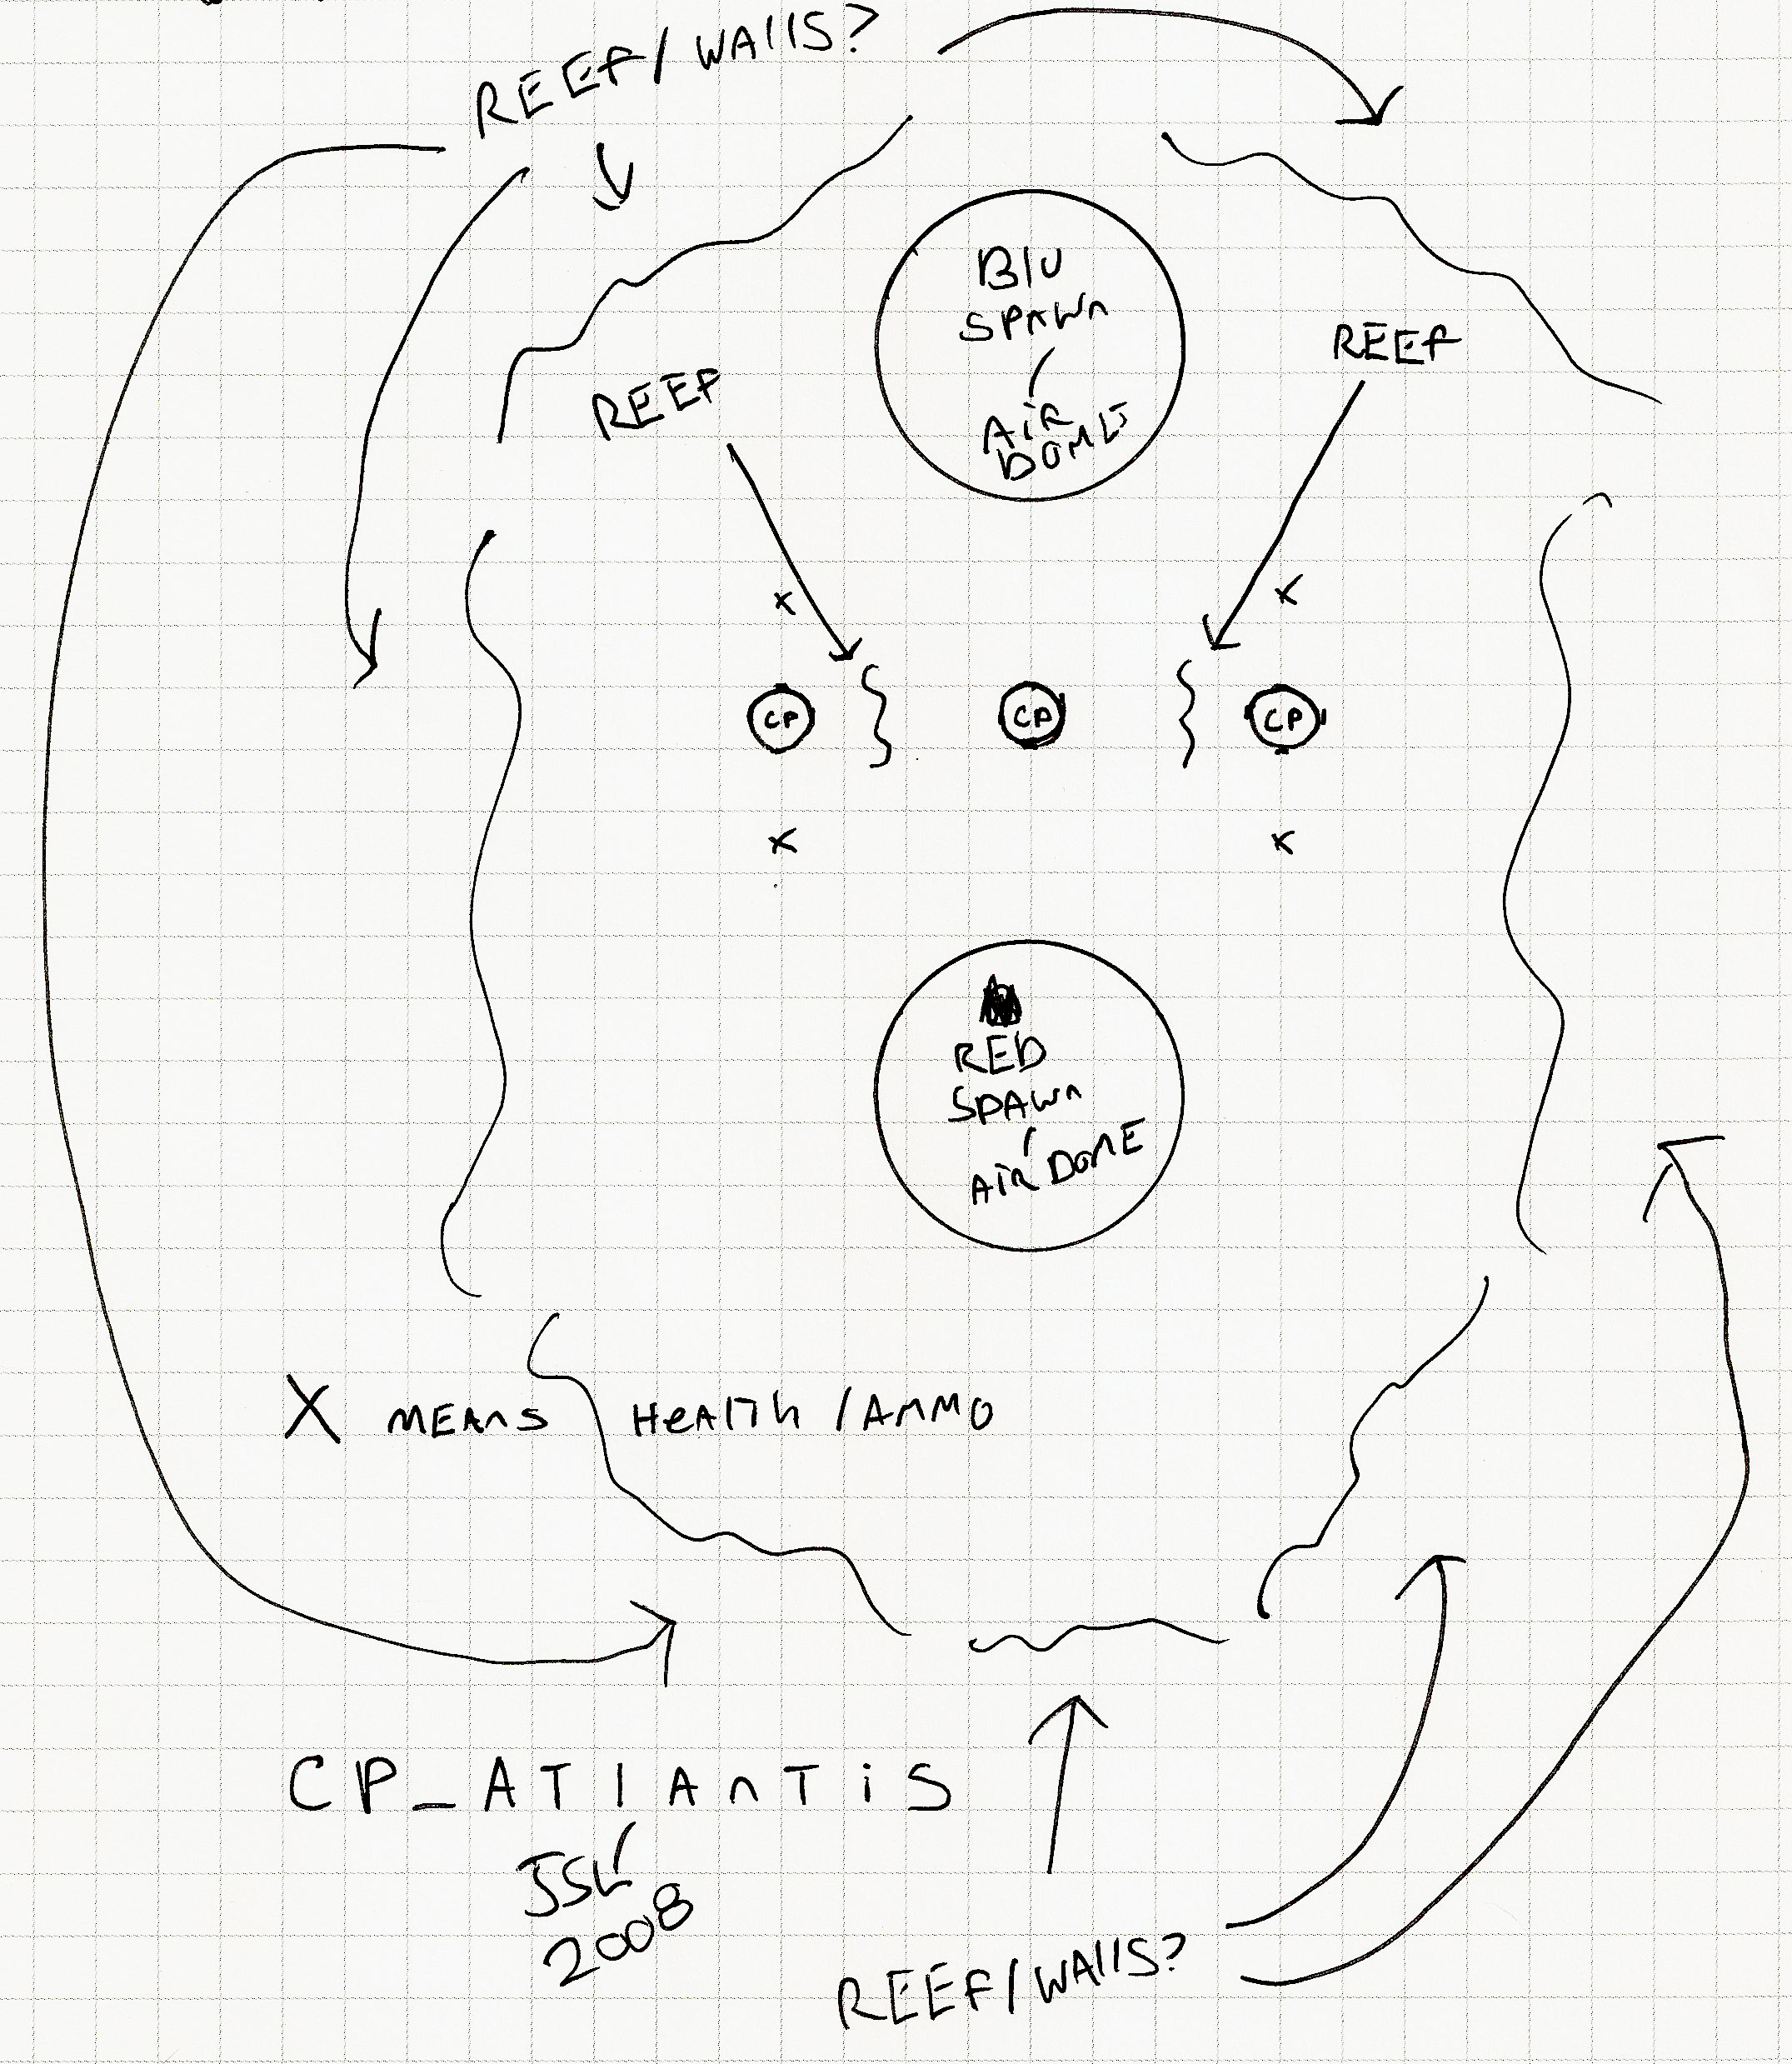 REEF/WALLS?
BLU
SPAWN
/
AIR
DOME
REEF
REEF
CP
CP
CP
X
X
X
X
RED
SPAWN
/
AIR DOME
X MEANS HEALTH/AMMO
CP_ATLANTIS
2008
REEF/WALLS?